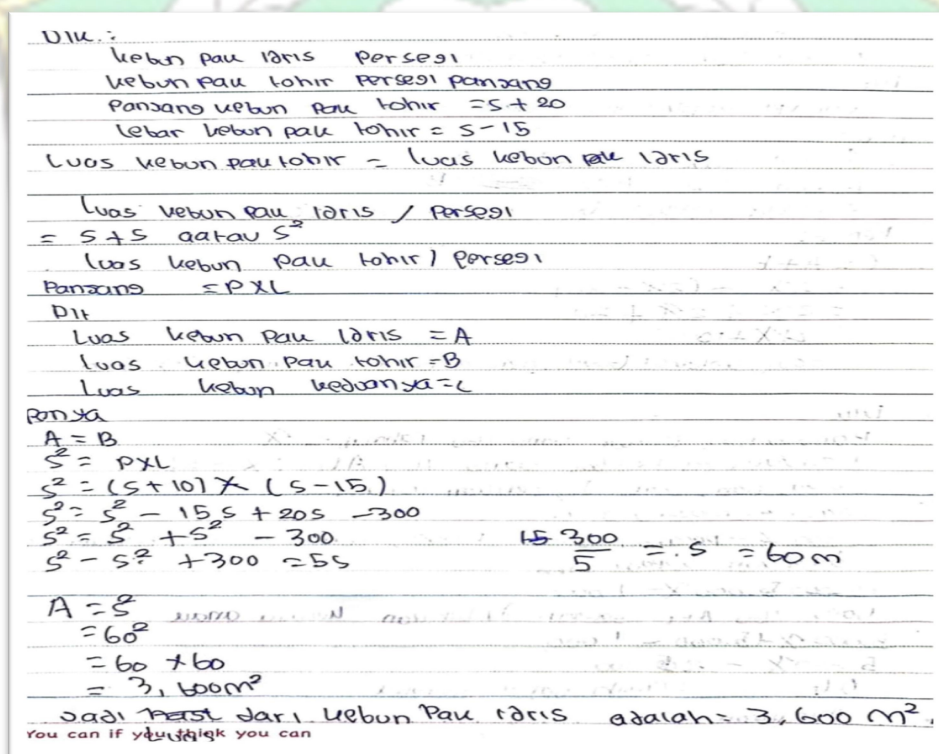 Dik :
kebun pak idris persegi
kebun pak tohir persegi panjang
Panjang kebun pak tohir = s + 20
lebar kebun pak tohir = s - 15
Luas kebun pak tohir = luas kebun pak idris
Luas kebun pak idris / persegi
= s + s aatau s²
luas kebun pak tohir / persegi
Panjang = P x L
Dit
Luas kebun pak idris = A
luas kebun pak tohir = B
Luas kebun keduanya = C
A = B
s² = P x L
s² = (s + 10) x (s - 15)
s² = s² - 15s + 20s - 300
s² = s² + s² - 300
s² - s² + 300 = 5s
300/5 = s = 60 m
A = s²
= 60²
= 60 x 60
= 3,600 m²
Jadi luas dari kebun Pak idris adalah = 3,600 m².
You can if you think you can